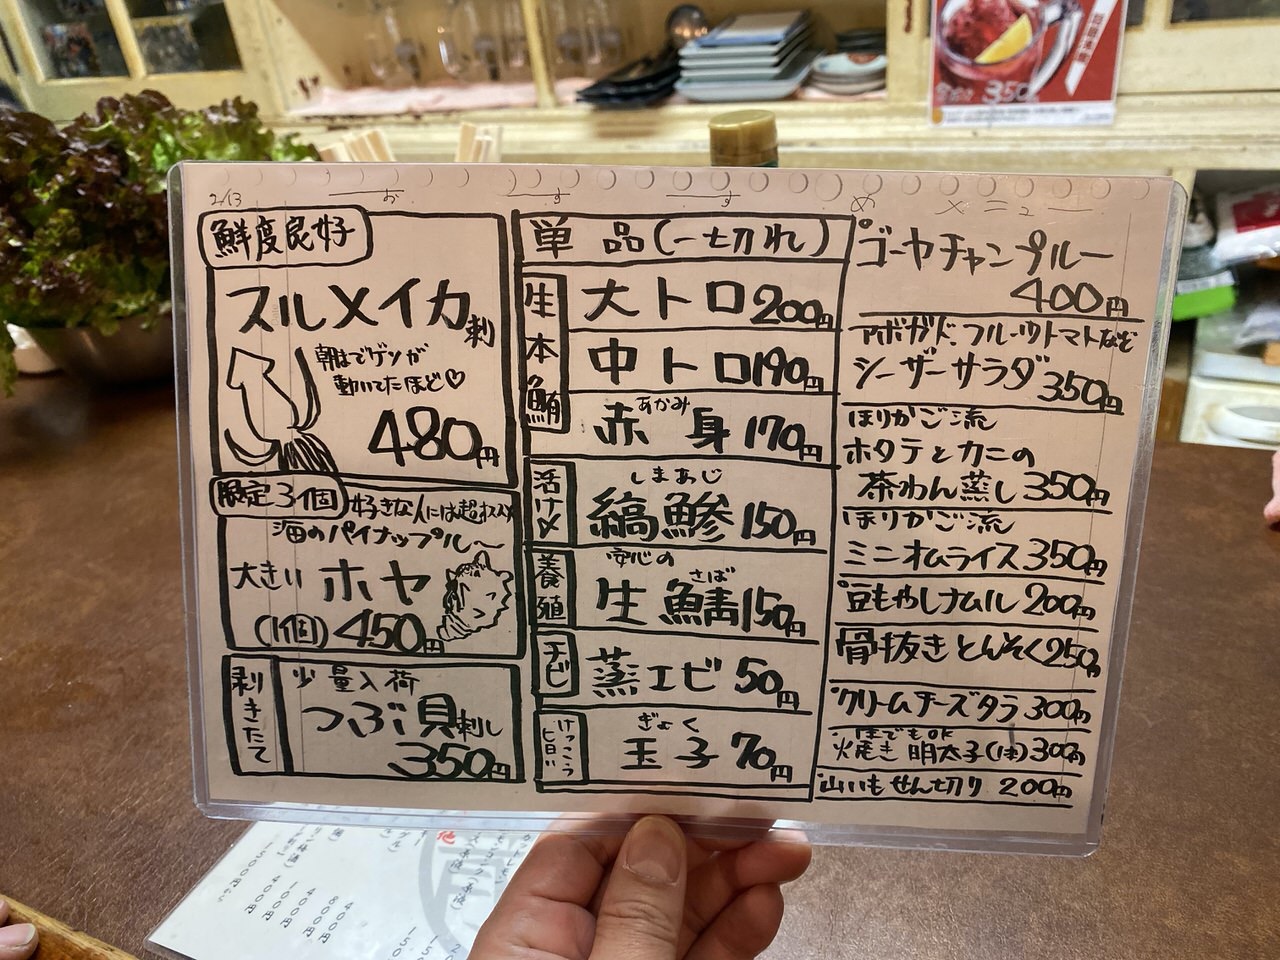 2/13
お す す め メ ニ ュ ー
鮮度良好
スルメイカ刺
朝までゲソが
動いてたほど♡
480円
限定3個
好きな人には超オススメ
海のパイナップル〜
大きい ホヤ
(1個) 450円
剥きたて
少量入荷
つぶ貝刺し
350円
単品(一切れ)
生本鮪
大トロ 200円
中トロ 190円
あかみ
赤身 170円
活け〆
しまあじ
縞鯵 150円
養殖
安心の
さば
生鯖 150円
チビ
蒸エビ 50円
けっこう旨い
ぎょく
玉子 70円
ゴーヤチャンプルー
400円
アボガド、フルーツトマトなど
シーザーサラダ 350円
ほりかご流
ホタテとカニの
茶わん蒸し 350円
ほりかご流
ミニオムライス 350円
豆もやしナムル 200円
骨抜きとんそく 250円
クリームチーズタラ 300円
生でもOK
焼き明太子(1本) 300円
山いもせん切り 200円
350